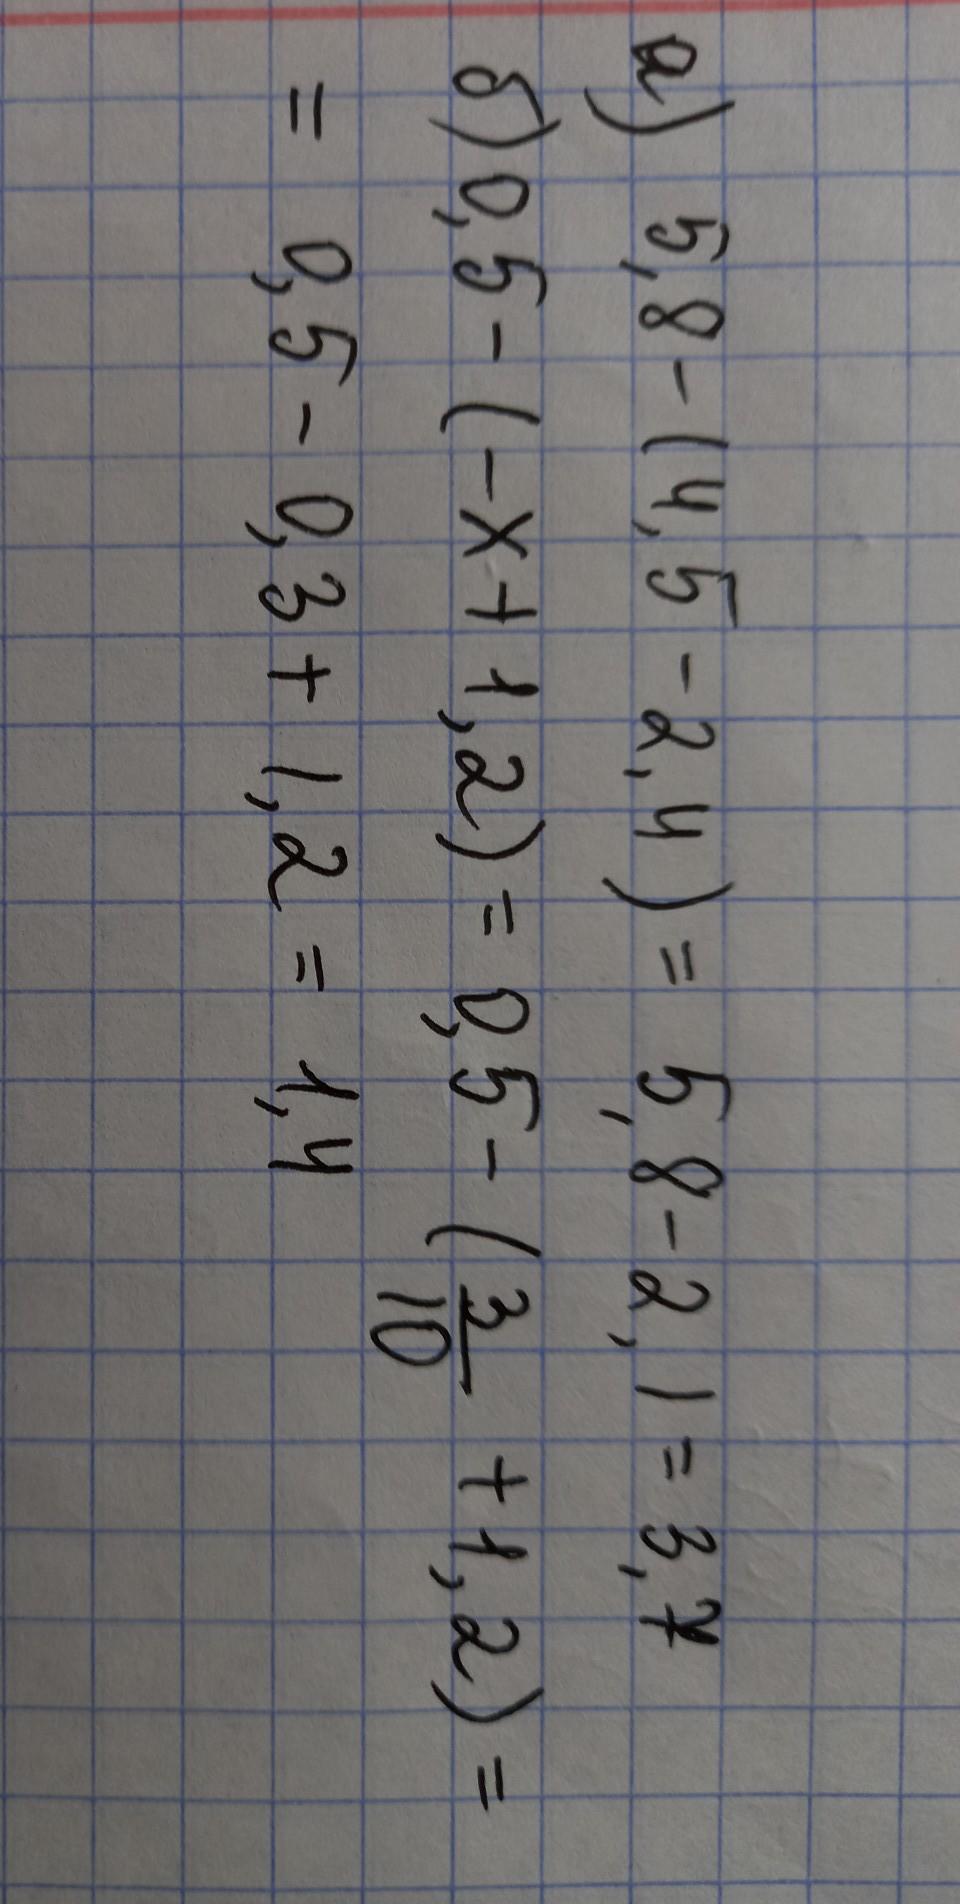 а) 5,8 - (4,5 - 2,4) = 5,8 - 2,1 = 3,7
б) 0,5 - (-x + 1,2) = 0,5 - (3/10 + 1,2) =
= 0,5 - 0,3 + 1,2 = 1,4